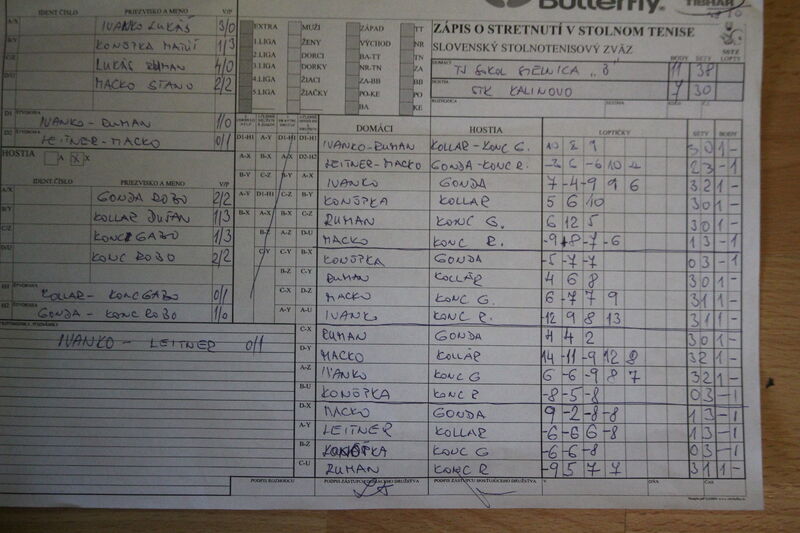 Butterfly
TIBHAR
IDENT.ČÍSLO PRIEZVISKO A MENO V/P
A/X IVANKO LUKÁŠ 3/0
B/Y KONÔPKA MATÚŠ 1/3
C/Z LUKÁŠ RUMAN 4/0
D/U MACKO STANO 2/2
D1 ŠTVORHRA
IVANKO - RUMAN 1/0
D2 ŠTVORHRA
LEITNER - MACKO 0/1
HOSTIA A X X
IDENT.ČÍSLO PRIEZVISKO A MENO V/P
A/X GONDA ROBO 2/2
B/Y KOLLAR DUŠAN 1/3
C/Z KONC GABO 1/3
D/U KONC ROBO 2/2
H1 ŠTVORHRA
KOLLAR - KONC GABO 0/1
H2 ŠTVORHRA
GONDA - KONC ROBO 1/0
IVANKO - LEITNER 0/1
EXTRA MUŽI ZÁPAD TT
1.LIGA ŽENY VÝCHOD NR
2.LIGA DORCI BA-TT TN
3.LIGA DORKY NR-TN ZA
4.LIGA ŽIACI ZA-BB BB
5.LIGA ŽIAČKY PO-KE PO
BA KE
ZÁPIS O STRETNUTÍ V STOLNOM TENISE
SLOVENSKÝ STOLNOTENISOVÝ ZVÄZ
SSTZ
DOMÁCI TJ SOKOL SIELNICA "B" BODY 11 SETY 38 LOPTY
HOSTIA STK KALINOVO 7 30
ROZHODCA
DOMÁCI HOSTIA LOPTIČKY SETY BODY
IVANKO-RUMAN KOLLAR-KONC G. 10 8 9 3 0 1 -
LEITNER-MACKO GONDA-KONC R. 2 3 - 1
IVANKO GONDA 7 -4 -9 9 6 3 2 1 -
KONÔPKA KOLLAR 5 6 10 3 0 1 -
RUMAN KONC G. 6 12 5 3 0 1 -
MACKO KONC R. -9 8 -7 -6 1 3 - 1
KONÔPKA GONDA -5 -7 -7 0 3 - 1
RUMAN KOLLÁR 4 6 8 3 0 1 -
MACKO KONC G. 6 -7 7 9 3 1 1 -
IVANKO KONC R. -12 9 8 13 3 1 1 -
C-X RUMAN GONDA 4 4 2 3 0 1 -
D-Y MACKO KOLLÁR 14 -11 -9 12 8 3 2 1 -
A-Z IVANKO KONC G 6 -6 -9 8 7 3 2 1 -
B-U KONÔPKA KONC R -8 -5 -8 0 3 - 1
D-X MACKO GONDA 9 -2 -8 -8 1 3 - 1
A-Y LEITNER KOLLAR -6 -6 6 -8 1 3 - 1
B-Z KONÔPKA KONC G -6 -6 -8 0 3 - 1
C-U RUMAN KONC R -9 5 7 7 3 1 1 -
PODPIS ROZHODCU PODPIS ZÁSTUPCU DOMÁCEHO DRUŽSTVA PODPIS ZÁSTUPCU HOSŤUJÚCEHO DRUŽSTVA V DŇA ČAS